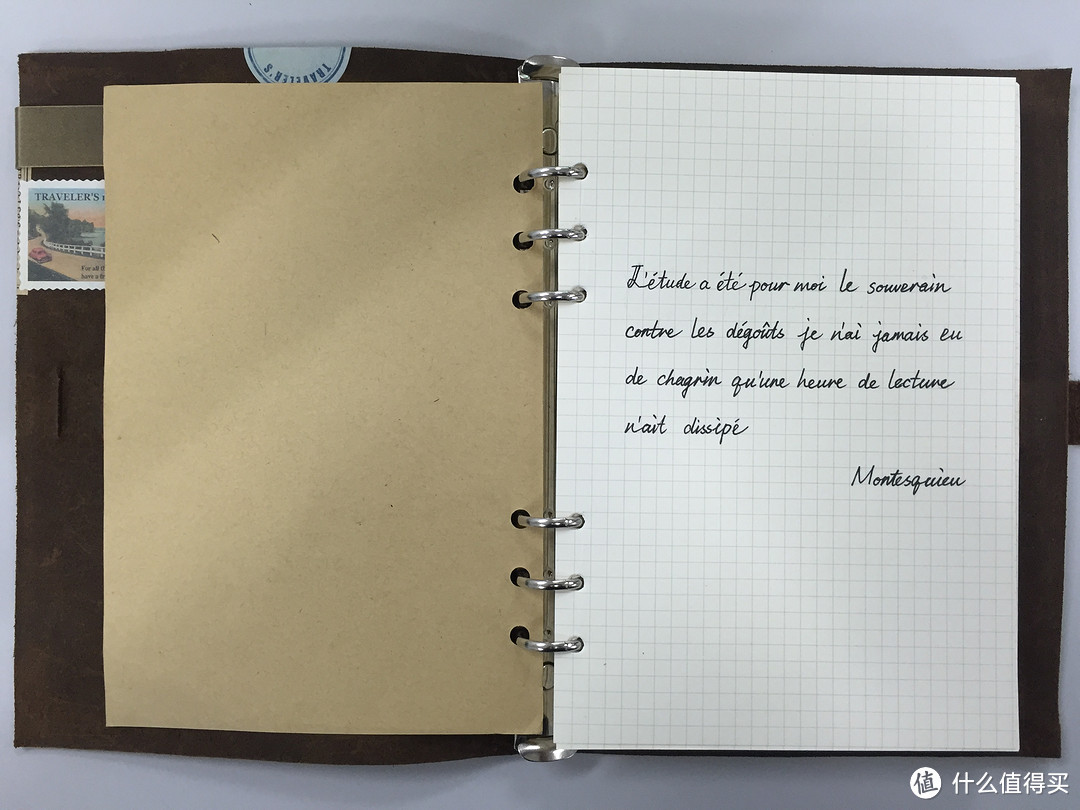 TRAVELER'S
TRAVELER'S
For all
have a
L'étude a été pour moi le souverain
contre les dégoûts je n'ai jamais eu
de chagrin qu'une heure de lecture
n'ait dissipé
Montesquieu
值 什么值得买